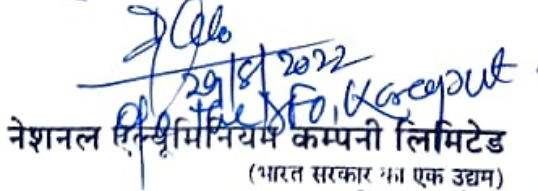 29/8/2022
DFO, Koraput
नेशनल एल्यूमिनियम कम्पनी लिमिटेड
(भारत सरकार का एक उद्यम)